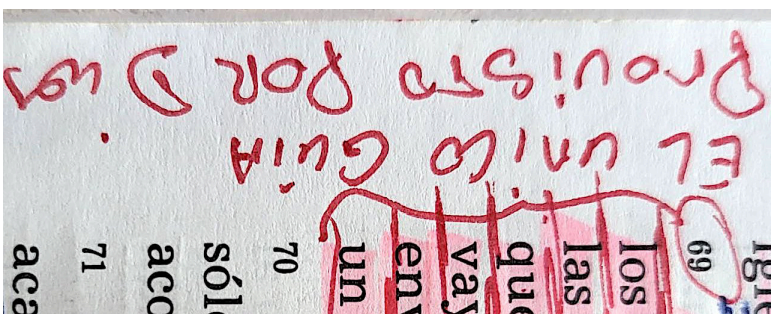 EL UNiCO GUiA
PROVISTO POR Dios
igle
69
los
las
que
vay
env
un
70
sól
71
aca